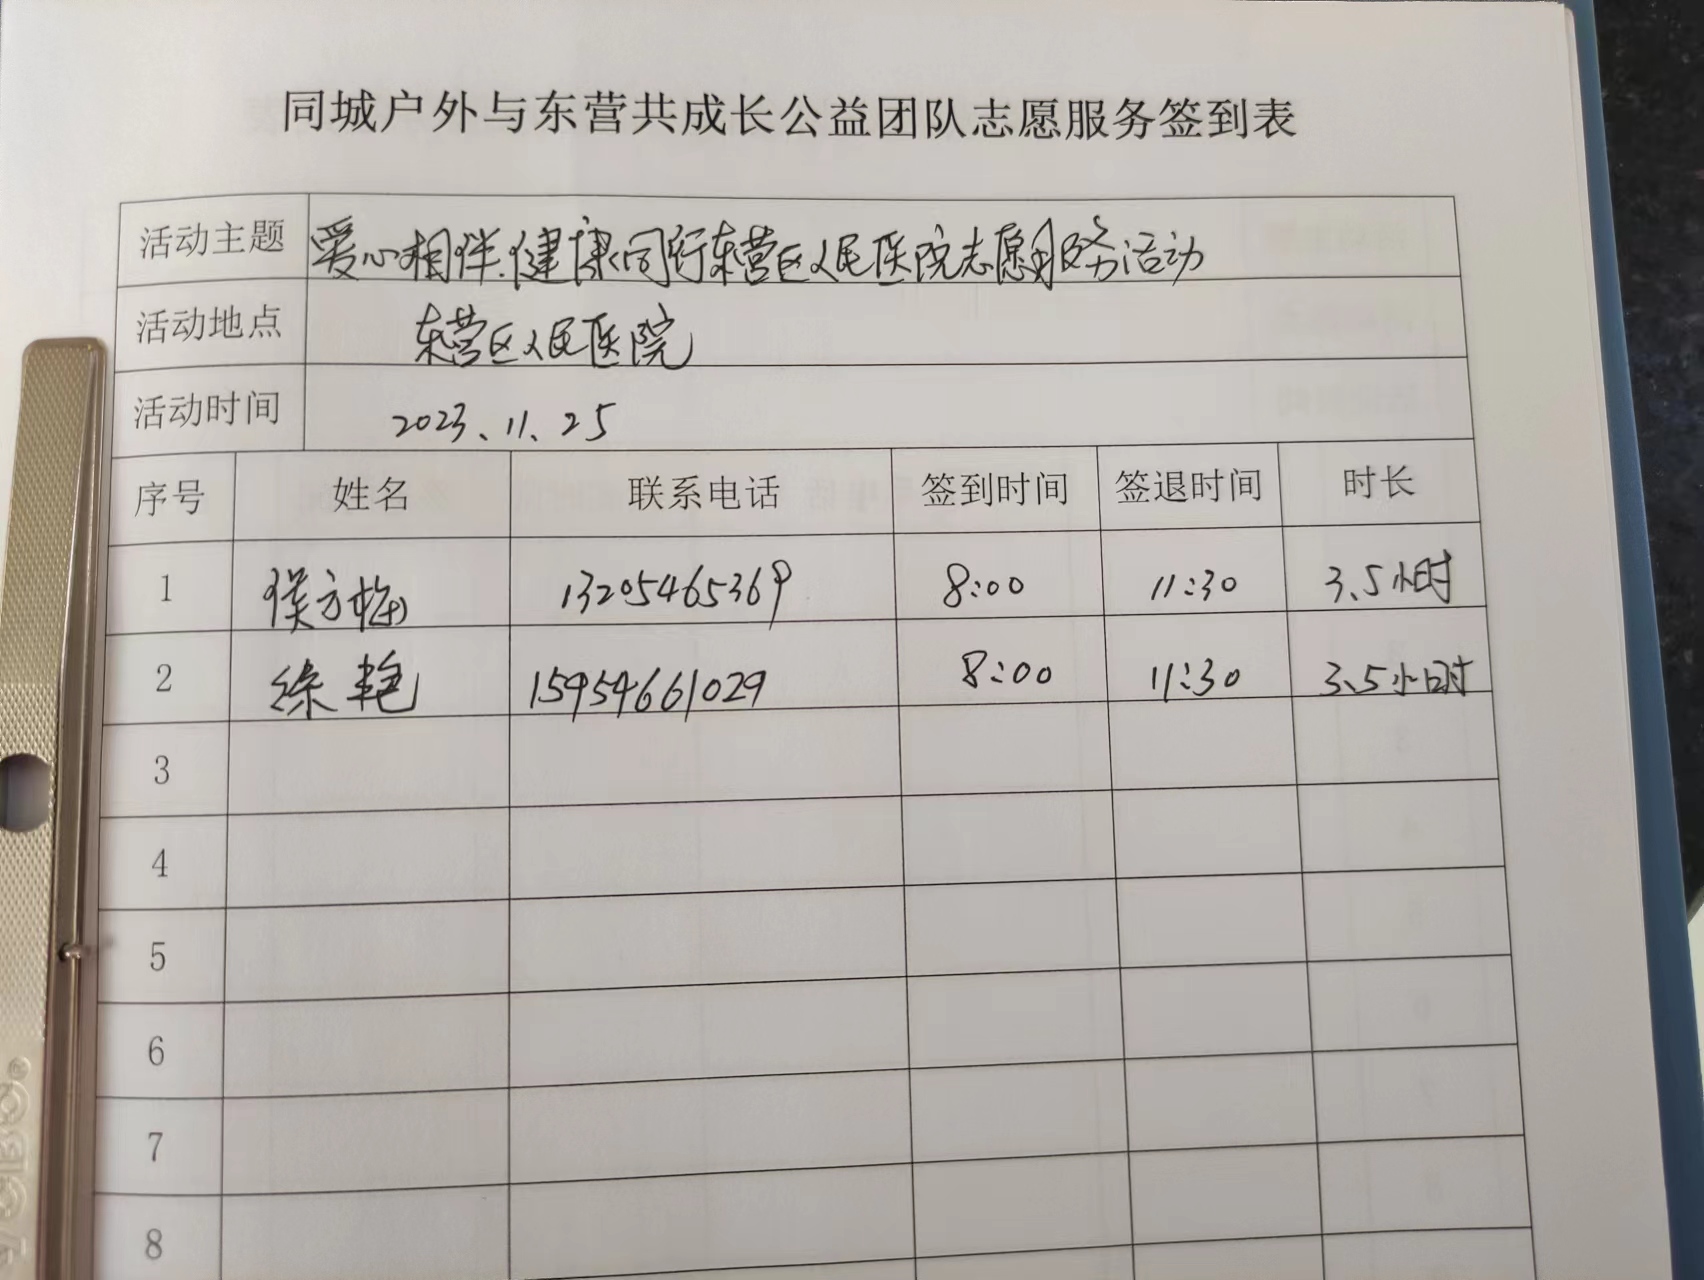 同城户外与东营共成长公益团队志愿服务签到表
活动主题 爱心相伴.健康同行东营区人民医院志愿服务活动
活动地点 东营区人民医院
活动时间 2023、11、25
序号 姓名 联系电话 签到时间 签退时间 时长
1 侯方梅 13205465369 8:00 11:30 3.5小时
2 徐艳 15954661029 8:00 11:30 3.5小时
3
4
5
6
7
8